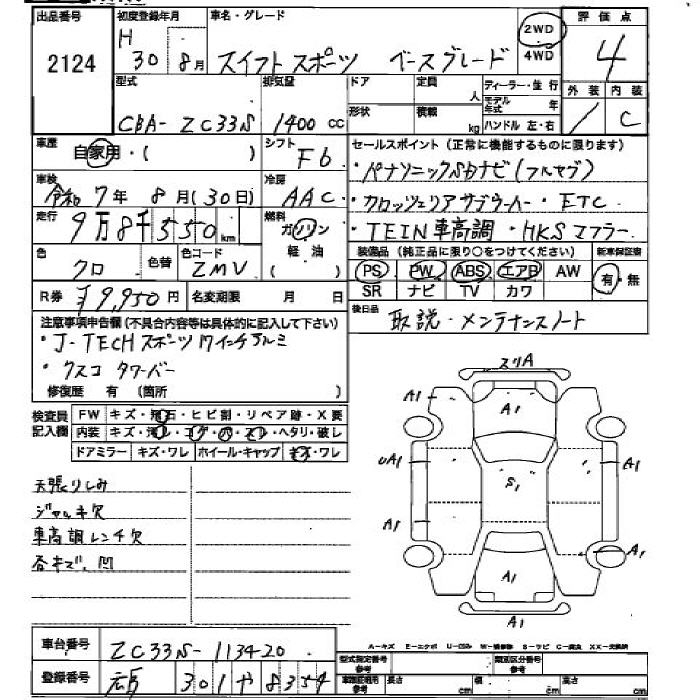 出品番号 初度登録年月 車名・グレード 評価点
2124 H 30年 8月 スイフト スポーツ ベースグレード 2WD 4WD 4
型式 排気量 ドア 定員 人 ディーラー・並行 外装 内装
CBA- ZC33S 1400 cc 形状 積載 kg モデル年式 年 ハンドル 左・右 1 C
車歴 自家用・( ) シフト F6 セールスポイント(正常に機能するものに限ります)
・パナソニックSDナビ(フルセグ)
車検 令和 7年 8月(30日) 冷房 AAC ・カロッツェリアサブウーハー ・ETC
走行 9万8千550km 燃料 ガソリン ・TEIN車高調 ・HKSマフラー
軽油 ( ) 装備品(純正品に限り○をつけてください) 新車保証書
色 クロ 色替 色コード ZMV PS PW ABS エアB AW 有・無
SR ナビ TV カワ
R券 ¥9,950円 名変期限 月 日 後日品 取説・メンテナンスノート
注意事項申告欄(不具合内容等は具体的に記入して下さい)
・J-TECHスポーツ17インチアルミ
・クスコ タワーバー
修復歴 有 (箇所 )
検査員記入欄 FW キズ・飛石・ヒビ割・リペア跡・X要
内装 キズ・汚レ・コゲ・穴・スレ・ヘタリ・破レ
ドアミラー キズ・ワレ ホイール・キャップ キズ・ワレ
天張りしみ
ジャッキ欠
車高調レンチ欠
各キズ、凹
スリA
A1 A1
UA1 S1 A1
A1 A1
A1
A1
車台番号 ZC33S-113420
登録番号 広島 301 や 8354
型式指定番号 参考 類別区分番号 参考
長さ cm 幅 cm 高さ cm